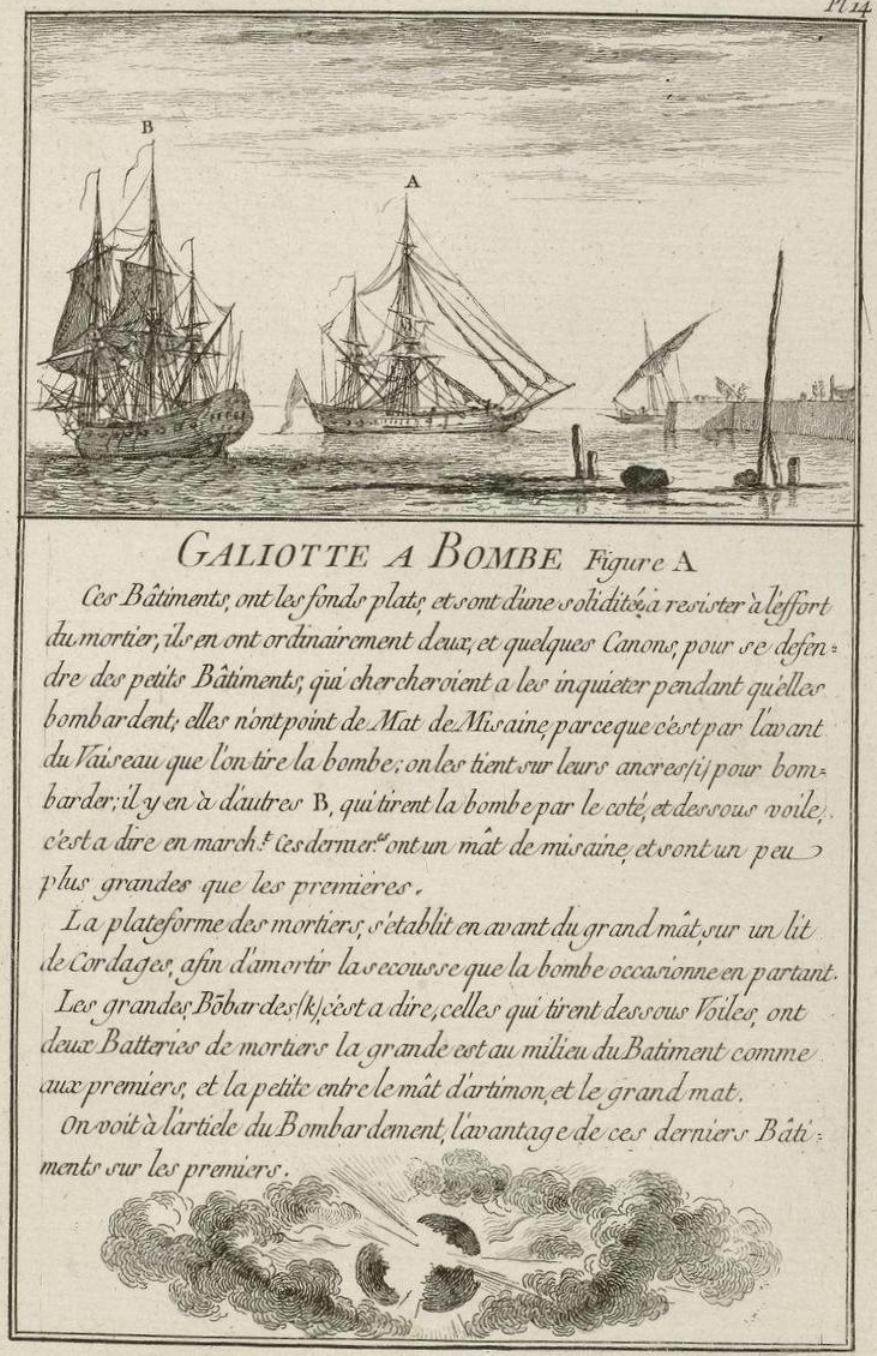 Pl 14
B
A
GALIOTTE A BOMBE Figure A
Ces Bâtiments, ont les fonds plats, et sont d'une solidité, a resister à l'éffort
du mortier, ils en ont ordinairement deux, et quelques Canons, pour se defen=
dre des petits Bâtiments, qui chercheroient a les inquieter pendant qu'elles
bombardent; elles n'ont point de Mat de Misaine, parce que c'est par l'avant
du Vaiseau que l'on tire la bombe; on les tient sur leurs ancres (i) pour bom=
barder; il y en à d'autres B, qui tirent la bombe par le coté, et dessous voile,
c'est a dire en march.t Ces dernier.es ont un mât de misaine, et sont un peu
plus grandes que les premiéres.
La plateforme des mortiers, s'établit en avant du grand mât, sur un lit
de Cordages, afin d'amortir la secousse que la bombe occasionne en partant.
Les grandes Bōbardes (k), c'ést a dire, celles qui tirent dessous Voiles, ont
deux Batteries de mortiers la grande est au milieu du Batiment comme
aux premiers, et la petite entre le mât d'artimon, et le grand mat.
On voit à l'article du Bombardement, l'avantage de ces derniers Bâti=
ments sur les premiers.